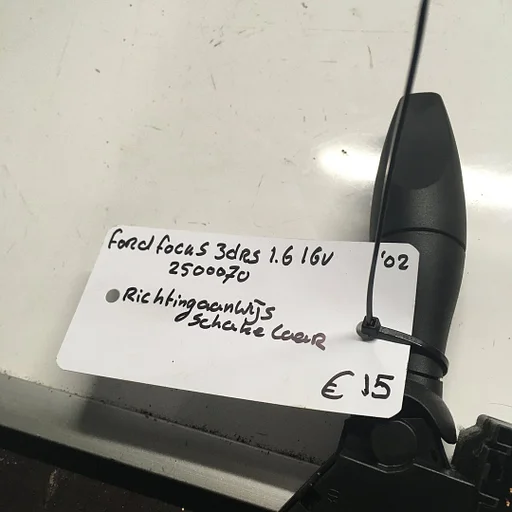 Ford focus 3dRs 1.6 16V '02
2500070
Richtingaanwijs
Schakelaar
€ 15